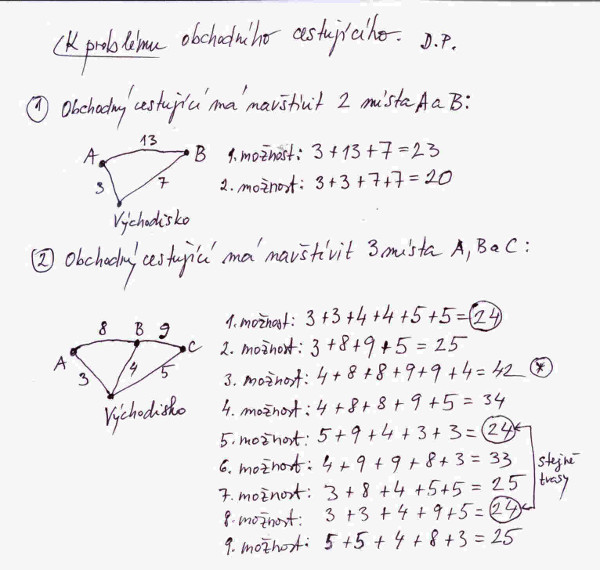 K problému obchodního cestujícího. D.P.
① Obchodný cestující má navštívit 2 místa A a B:
13
A B
3 7
Východisko
1. možnost: 3+13+7=23
2. možnost: 3+3+7+7=20
② Obchodný cestující má navštívit 3 místa A, B a C:
8 B 9
A C
3 4 5
Východisko
1. možnost: 3+3+4+4+5+5=24
2. možnost: 3+8+9+5=25
3. možnost: 4+8+8+9+9+4=42 *
4. možnost: 4+8+8+9+5=34
5. možnost: 5+9+4+3+3=24
6. možnost: 4+9+9+8+3=33
7. možnost: 3+8+4+5+5=25
8. možnost: 3+3+4+9+5=24
9. možnost: 5+5+4+8+3=25
stejné
trasy